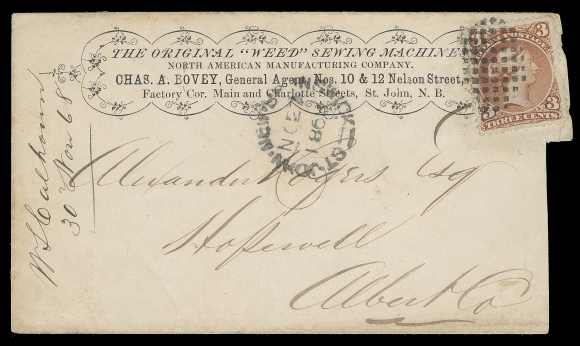 THE ORIGINAL "WEED" SEWING MACHINE
NORTH AMERICAN MANUFACTURING COMPANY.
CHAS. A. BOVEY, General Agent, Nos. 10 & 12 Nelson Street,
Factory Cor. Main and Charlotte Streets, St. John, N. B.
3 3
3 3
THREE CENTS
Alexander Rogers Esq
Hopewell
Albert Co
30th Nov 68